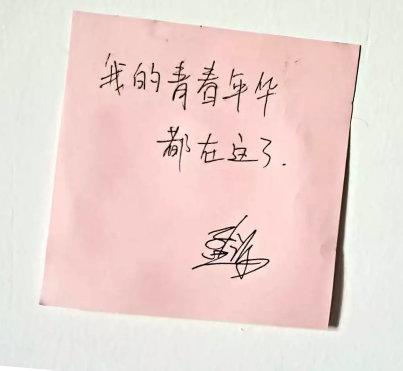 我的青春年华
都在这了.